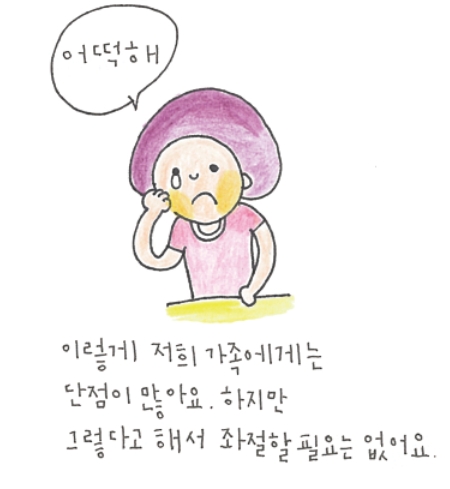 어떡해
이렇게 저희 가족에게는
단점이 많아요. 하지만
그렇다고 해서 좌절할 필요는 없어요.